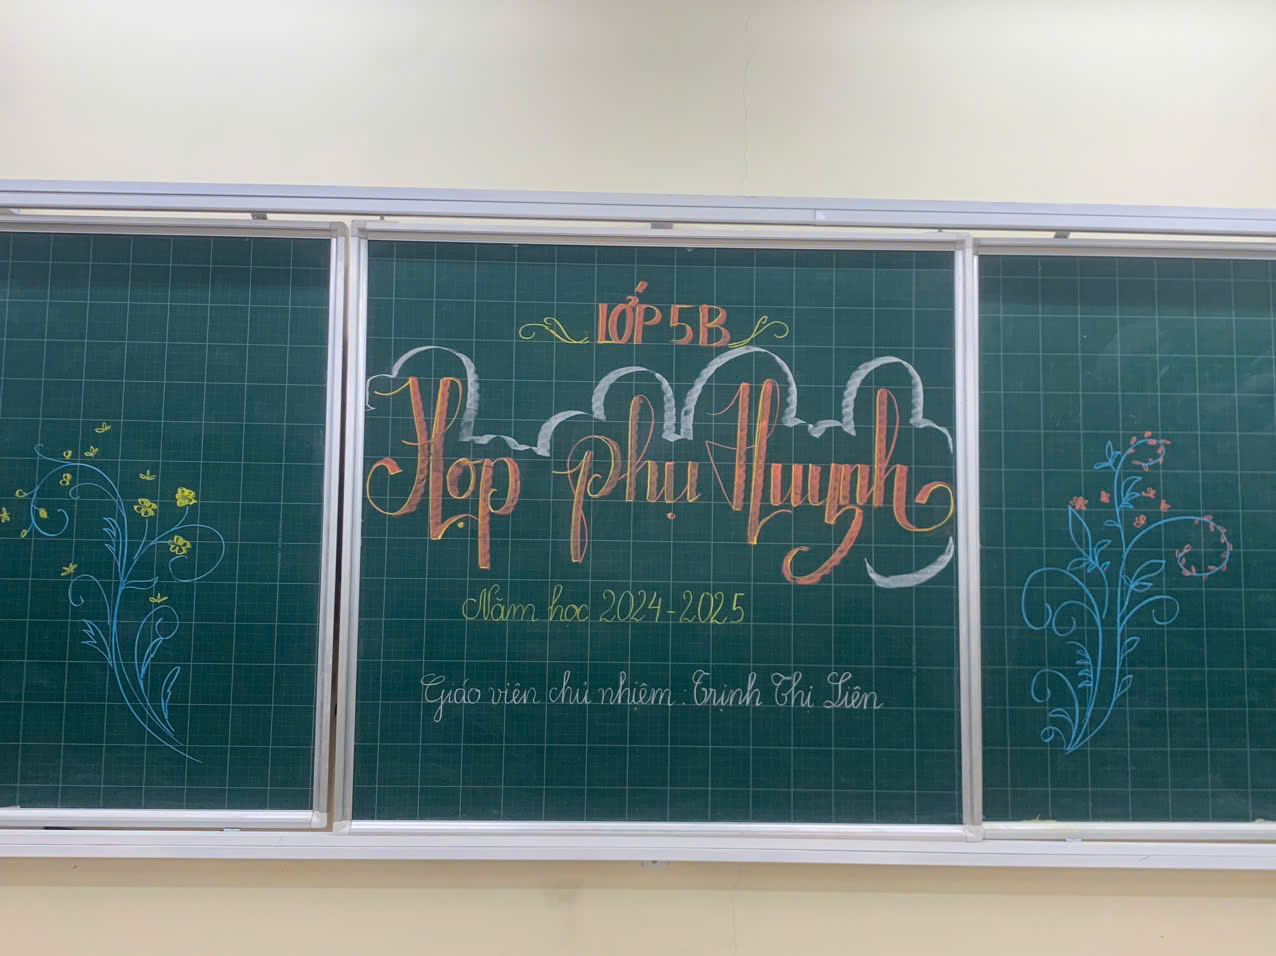 LỚP 5B
Họp phụ Huynh
Năm học 2024-2025
Giáo viên chủ nhiệm: Trịnh Thị Liên